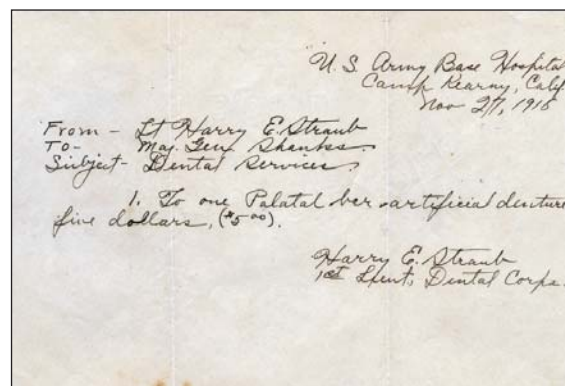 U.S. Army Base Hospital
Camp Kearny, Calif
Nov 27, 1918
From - Lt Harry E. Straub
To - Maj. Gen Shanks.
Subject - Dental Services.
1. To one Palatal bar artificial denture
five dollars, ($5.00).
Harry E. Straub
1st Lieut, Dental Corps.